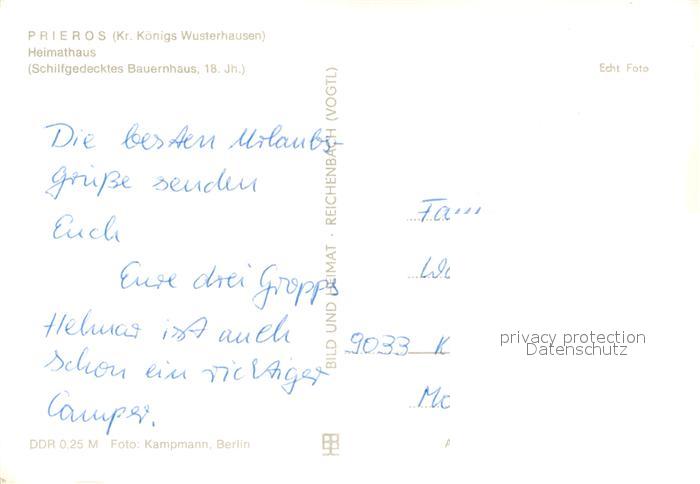 PRIEROS (Kr. Königs Wusterhausen)
Heimathaus
(Schilfgedecktes Bauernhaus, 18. Jh.)
Echt Foto
Die besten Urlaubs-
grüße senden
Euch
Eure drei Gropps
Helmar ist auch
schon ein richtiger
Camper.
BILD UND HEIMAT · REICHENBACH (VOGTL)
Fam
9033 K
privacy protection
Datenschutz
DDR 0,25 M Foto: Kampmann, Berlin
A